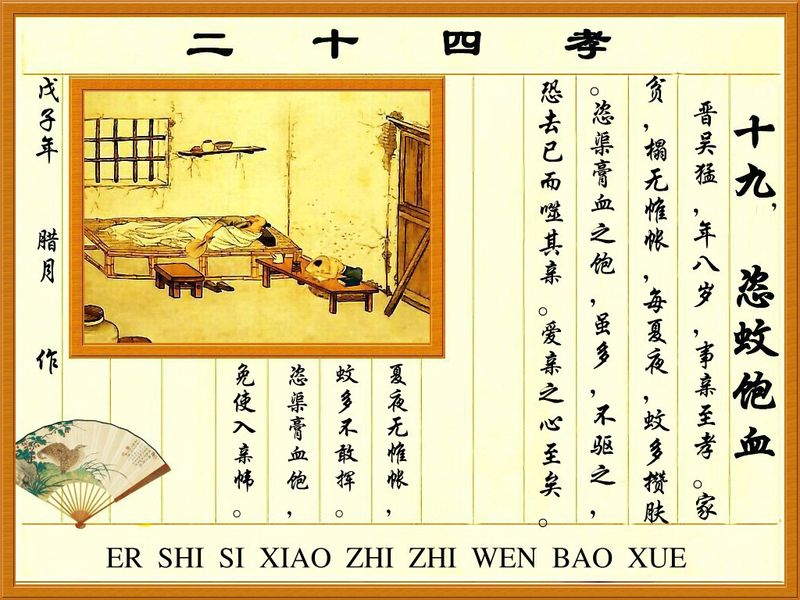 二十四孝
十九，恣蚊饱血
晋吴猛，年八岁，事亲至孝。家
贫，榻无帷帐，每夏夜，蚊多攒肤
。恣渠膏血之饱，虽多，不驱之，
恐去已而噬其亲。爱亲之心至矣。
夏夜无帷帐，
蚊多不敢挥。
恣渠膏血饱，
免使入亲帏。
戊子年 腊月 作
ER SHI SI XIAO ZHI ZHI WEN BAO XUE